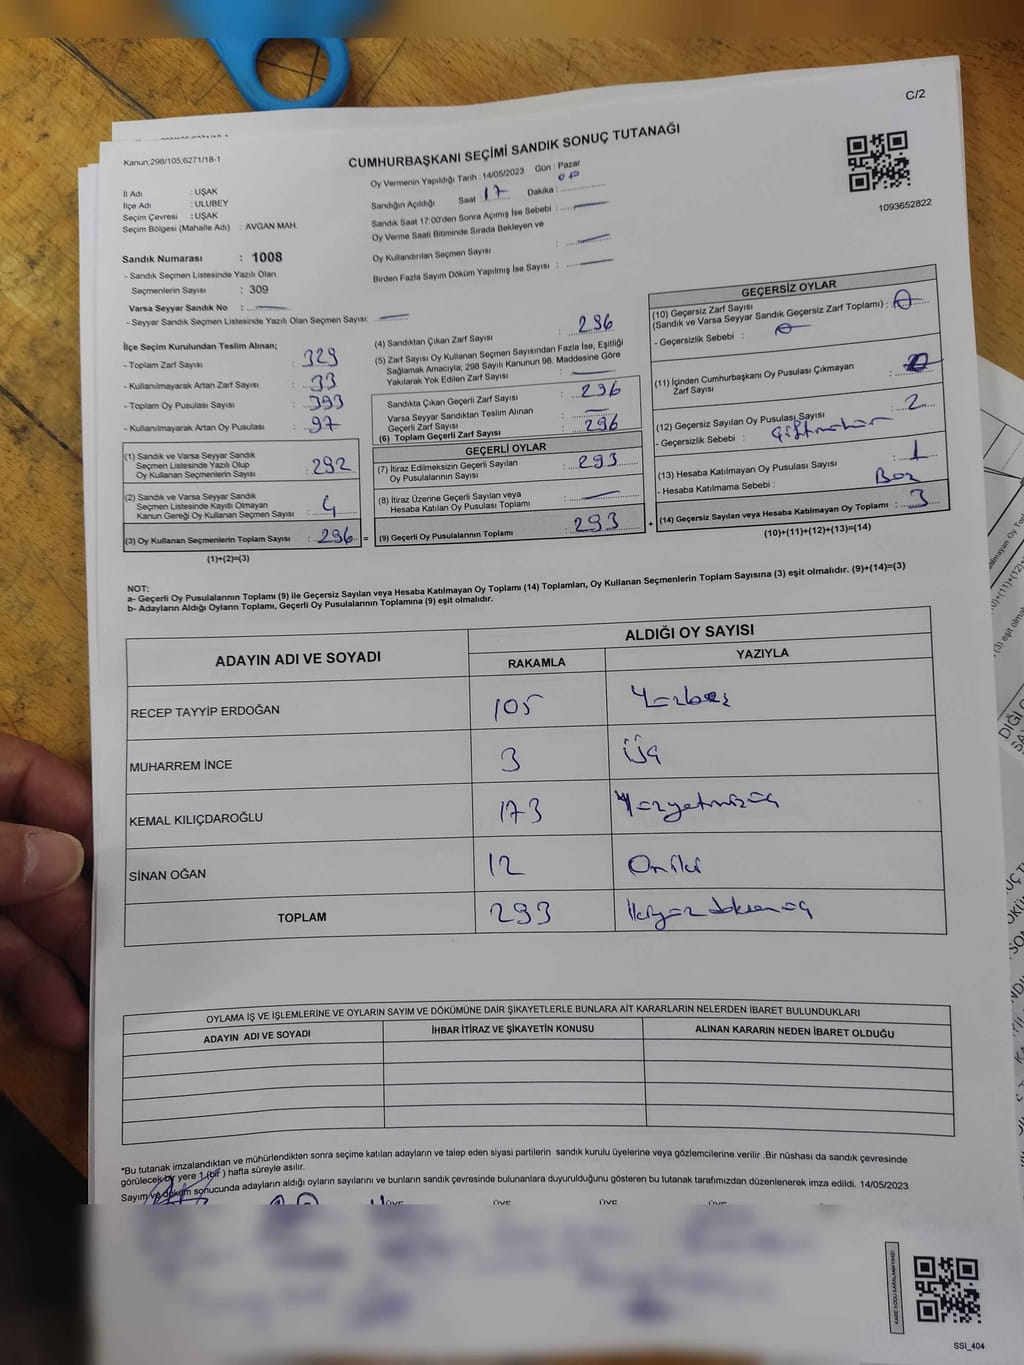 C/2
Kanun;298/105;6271/18-1
CUMHURBAŞKANI SEÇİMİ SANDIK SONUÇ TUTANAĞI
1093652822
İl Adı : UŞAK
İlçe Adı : ULUBEY
Seçim Çevresi : UŞAK
Seçim Bölgesi (Mahalle Adı) : AVGAN MAH.
Oy Vermenin Yapıldığı Tarih : 14/05/2023 Gün : Pazar
Sandığın Açıldığı Saat : 17 Dakika : 00
Sandık Saat 17:00'den Sonra Açımış İse Sebebi :
Oy Verme Saati Bitiminde Sırada Bekleyen ve
Oy Kullandırılan Seçmen Sayısı :
Birden Fazla Sayım Döküm Yapılmış İse Sayısı :
Sandık Numarası : 1008
- Sandık Seçmen Listesinde Yazılı Olan
Seçmenlerin Sayısı : 309
Varsa Seyyar Sandık No :
- Seyyar Sandık Seçmen Listesinde Yazılı Olan Seçmen Sayısı:
İlçe Seçim Kurulundan Teslim Alınan;
- Toplam Zarf Sayısı : 329
- Kullanılmayarak Artan Zarf Sayısı : 33
- Toplam Oy Pusulası Sayısı : 393
- Kullanılmayarak Artan Oy Pusulası : 97
(1) Sandık ve Varsa Seyyar Sandık
Seçmen Listesinde Yazılı Olup
Oy Kullanan Seçmenlerin Sayısı : 292
(2) Sandık ve Varsa Seyyar Sandık
Seçmen Listesinde Kayıtlı Olmayan
Kanun Gereği Oy Kullanan Seçmen Sayısı : 4
(3) Oy Kullanan Seçmenlerin Toplam Sayısı : 296 =
(1)+(2)=(3)
(4) Sandıktan Çıkan Zarf Sayısı : 296
(5) Zarf Sayısı Oy Kullanan Seçmen Sayısından Fazla İse, Eşitliği
Sağlamak Amacıyla; 298 Sayılı Kanunun 98. Maddesine Göre
Yakılarak Yok Edilen Zarf Sayısı :
Sandıkta Çıkan Geçerli Zarf Sayısı : 296
Varsa Seyyar Sandıktan Teslim Alınan
Geçerli Zarf Sayısı :
(6) Toplam Geçerli Zarf Sayısı : 296
GEÇERLİ OYLAR
(7) İtiraz Edilmeksizin Geçerli Sayılan
Oy Pusulalarının Sayısı : 293
(8) İtiraz Üzerine Geçerli Sayılan veya
Hesaba Katılan Oy Pusulası Toplamı :
(9) Geçerli Oy Pusulalarının Toplamı : 293 +
GEÇERSİZ OYLAR
(10) Geçersiz Zarf Sayısı
(Sandık ve Varsa Seyyar Sandık Geçersiz Zarf Toplamı) : 0
- Geçersizlik Sebebi : 0
(11) İçinden Cumhurbaşkanı Oy Pusulası Çıkmayan
Zarf Sayısı : 0
(12) Geçersiz Sayılan Oy Pusulası Sayısı : 2
- Geçersizlik Sebebi :
(13) Hesaba Katılmayan Oy Pusulası Sayısı : 1
- Hesaba Katılmama Sebebi : Boş
(14) Geçersiz Sayılan veya Hesaba Katılmayan Oy Toplamı : 3
(10)+(11)+(12)+(13)=(14)
NOT:
a- Geçerli Oy Pusulalarının Toplamı (9) ile Geçersiz Sayılan veya Hesaba Katılmayan Oy Toplamı (14) Toplamları, Oy Kullanan Seçmenlerin Toplam Sayısına (3) eşit olmalıdır. (9)+(14)=(3)
b- Adayların Aldığı Oyların Toplamı, Geçerli Oy Pusulalarının Toplamına (9) eşit olmalıdır.
ADAYIN ADI VE SOYADI
ALDIĞI OY SAYISI
RAKAMLA YAZIYLA
RECEP TAYYİP ERDOĞAN 105 Yüzbeş
MUHARREM İNCE 3 Üç
KEMAL KILIÇDAROĞLU 173 Yüzyetmişüç
SİNAN OĞAN 12 Oniki
TOPLAM 293 İkiyüzdoksanüç
OYLAMA İŞ VE İŞLEMLERİNE VE OYLARIN SAYIM VE DÖKÜMÜNE DAİR ŞİKAYETLERLE BUNLARA AİT KARARLARIN NELERDEN İBARET BULUNDUKLARI
ADAYIN ADI VE SOYADI İHBAR İTİRAZ VE ŞİKAYETİN KONUSU ALINAN KARARIN NEDEN İBARET OLDUĞU
*Bu tutanak imzalandıktan ve mühürlendikten sonra seçime katılan adayların ve talep eden siyasi partilerin sandık kurulu üyelerine veya gözlemcilerine verilir .Bir nüshası da sandık çevresinde
görülecek bir yere 1 (bir ) hafta süreyle asılır.
Sayım ve döküm sonucunda adayların aldığı oyların sayılarını ve bunların sandık çevresinde bulunanlara duyurulduğunu gösteren bu tutanak tarafımızdan düzenlenerek imza edildi. 14/05/2023
ÜYE ÜYE ÜYE ÜYE
SSI_404